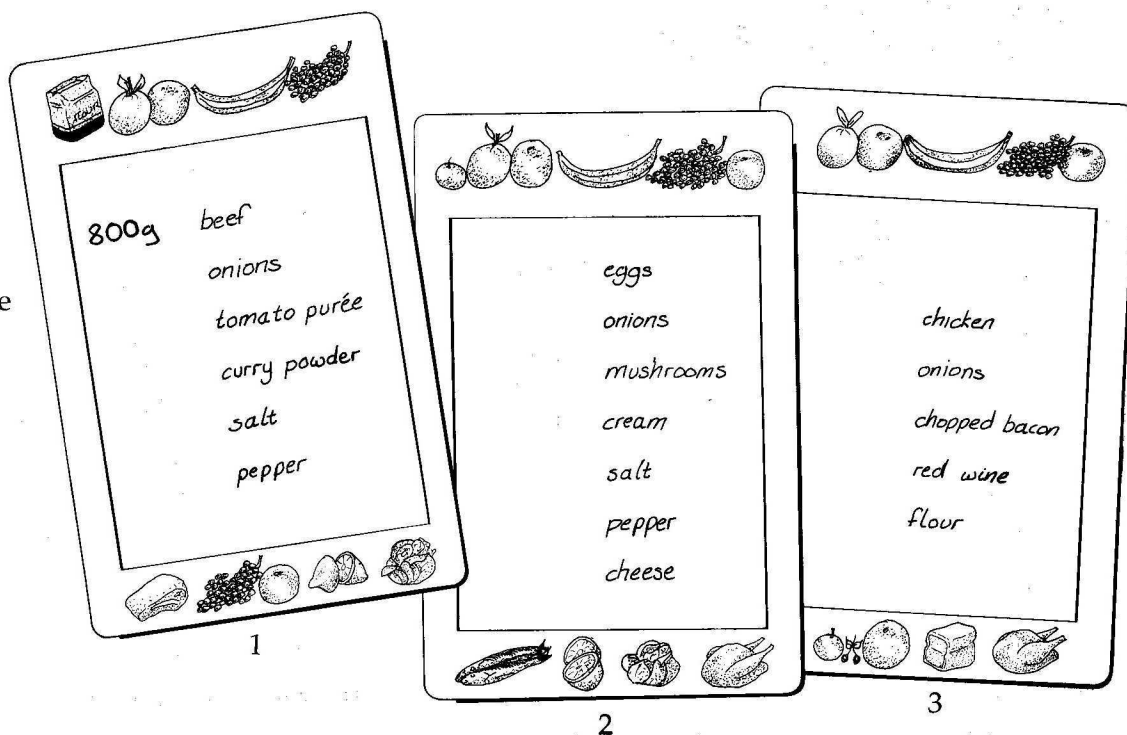 FLOUR
800g beef
onions
tomato purée
curry powder
salt
pepper
1
eggs
onions
mushrooms
cream
salt
pepper
cheese
2
chicken
onions
chopped bacon
red wine
flour
3
e